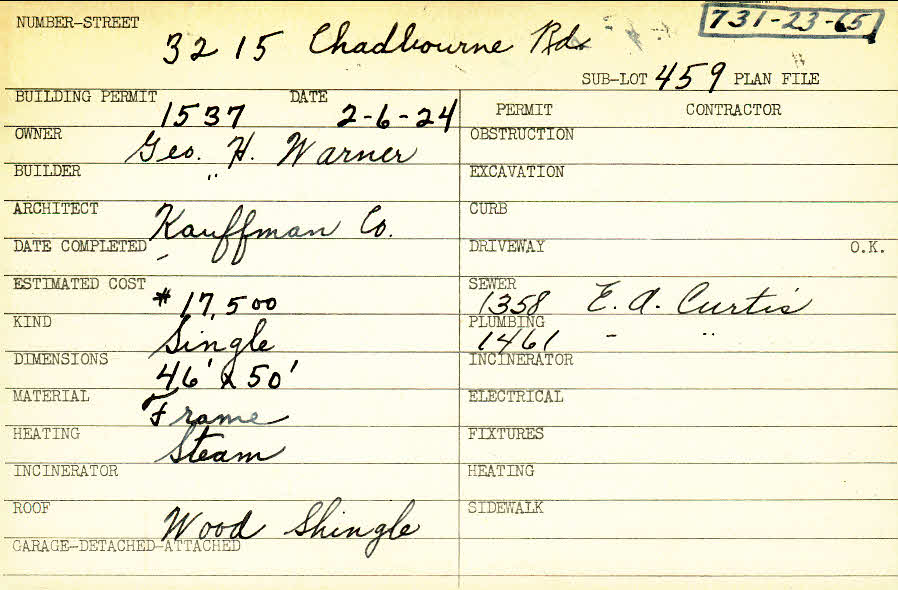 NUMBER-STREET 731-23-65
3215 Chadbourne Rd.
SUB-LOT 459 PLAN FILE
BUILDING PERMIT DATE
1537 2-6-24
PERMIT CONTRACTOR
OWNER Geo. H. Warner
OBSTRUCTION
BUILDER "
EXCAVATION
ARCHITECT Kauffman Co.
CURB
DATE COMPLETED -
DRIVEWAY O.K.
ESTIMATED COST # 17,500
SEWER
1358 E. A. Curtis
KIND Single
PLUMBING
1461 - "
DIMENSIONS 46' x 50'
INCINERATOR
MATERIAL Frame
ELECTRICAL
HEATING Steam
FIXTURES
INCINERATOR
HEATING
ROOF Wood Shingle
SIDEWALK
GARAGE-DETACHED-ATTACHED